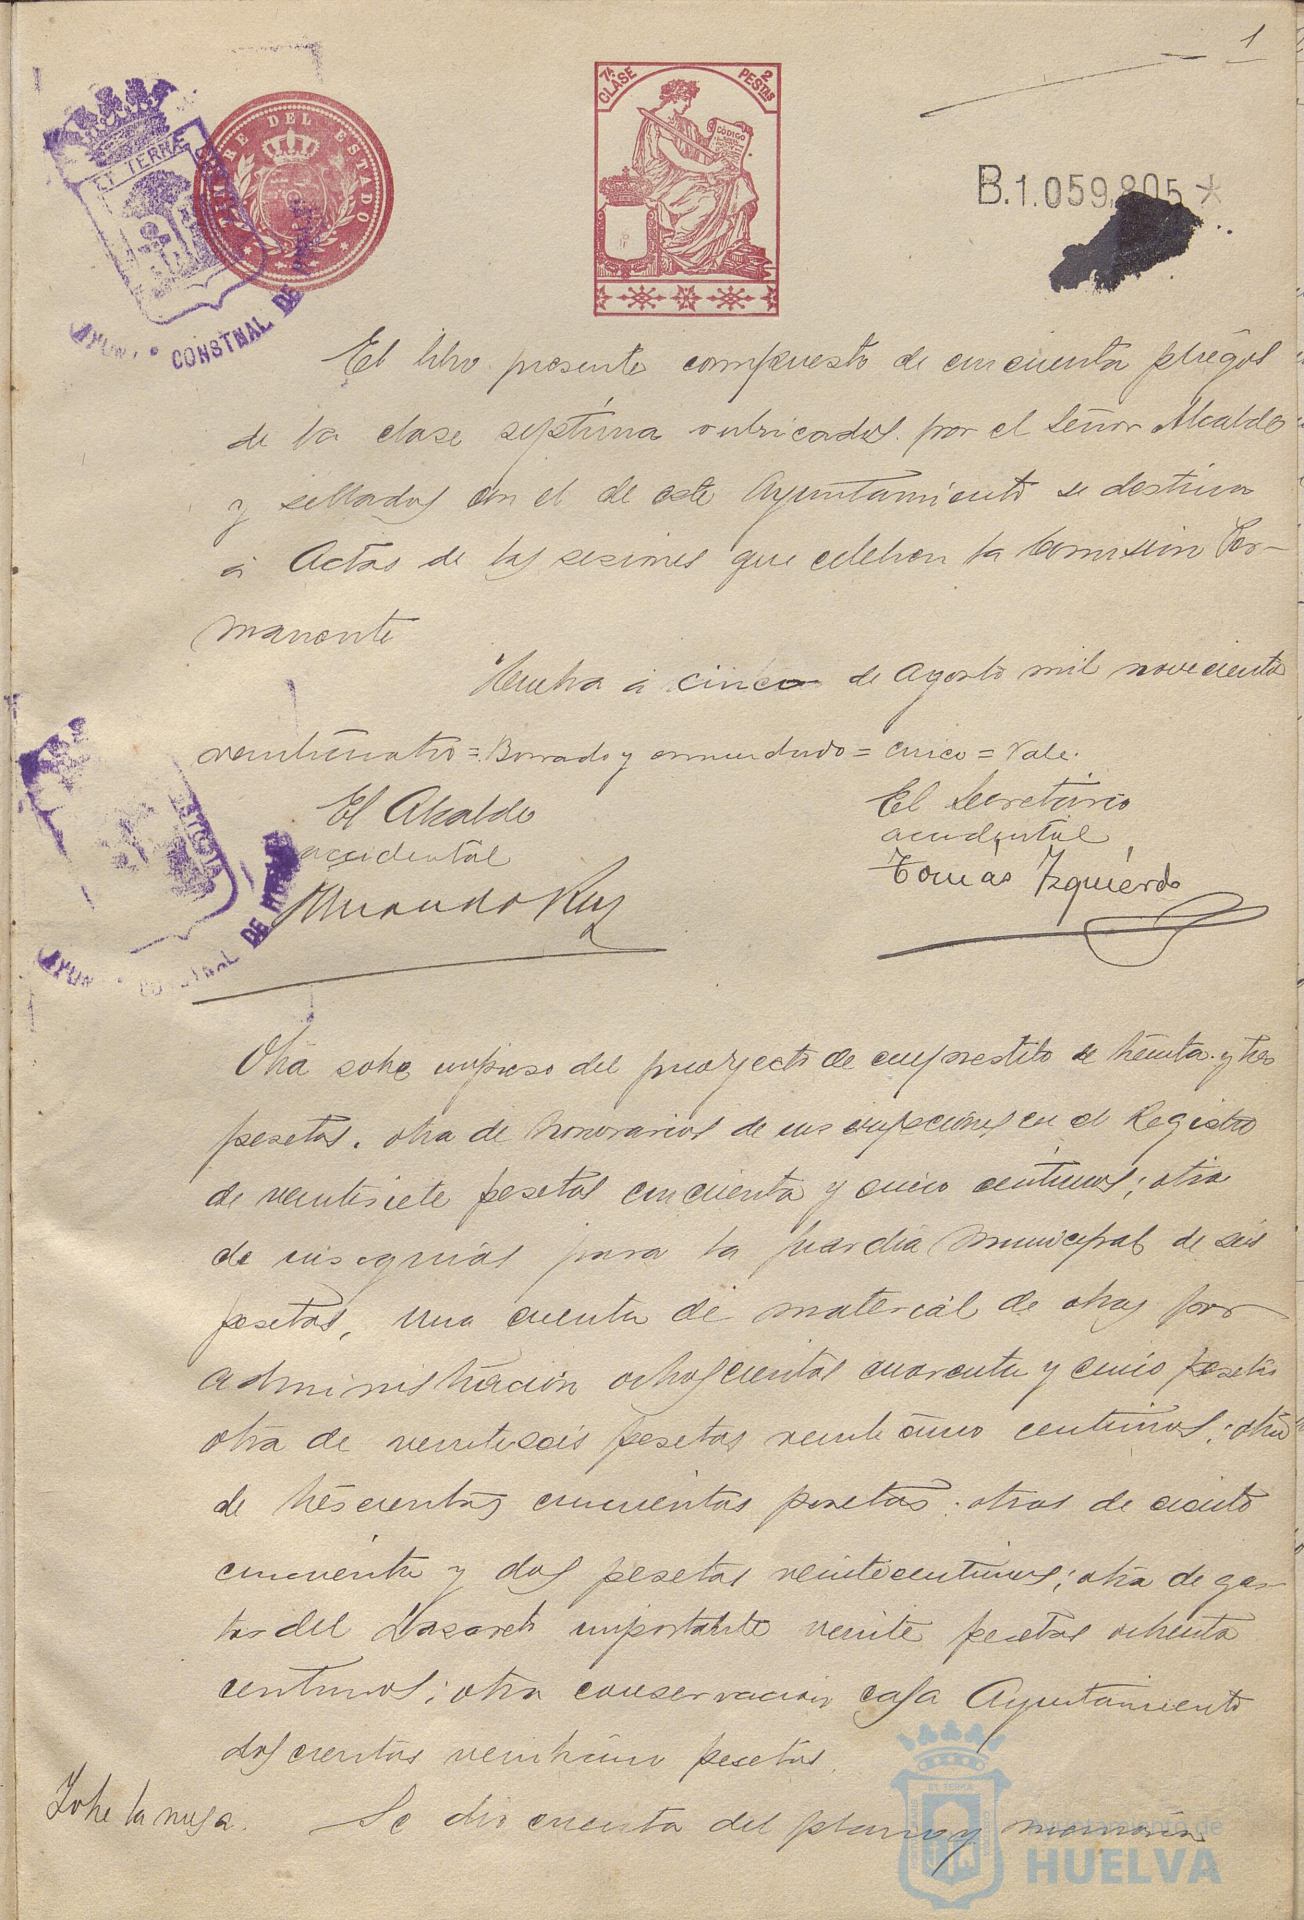 1
7ª CLASE 2 PESTAS
CÓDIGO
TIMBRE DEL ESTADO
ET TERRÆ
AYUNTº CONSTNAL DE HUELVA
B.1.059.805*
El libro presente compuesto de cincuenta pliegos
de la clase septima rubricados por el Señor Alcalde
y sellados con el de este Ayuntamiento se destina
á Actas de las sesiones que celebren la Comision Per-
manente
Huelva á cinco de Agosto mil novecientos
veinticuatro = Borrado y enmendado = cinco = Vale.
El Alcalde
accidental
El Secretario
accidental
Tomás Izquierdo
CUSTODIA
AYUNTº CONSTNAL DE HUELVA
Otra sobre impreso del proyecto de emprestito de treinta y tres
pesetas. otra de honorarios de inscripciones en el Registro
de veintisiete pesetas cincuenta y cinco centimos; otra
de insignias para la guardia municipal de seis
pesetas, una cuenta de material de obras por
administración ochoscientas cuarenta y cinco pesetas
otra de veinteseis pesetas veinte cinco centimos; otra
de trescientas cincuentas pesetas. otras de ciento
cincuenta y dos pesetas veinte centimos; otra de gas-
tos del Lazareto importante veinte pesetas ochenta
centimos; otra conservacion casa Ayuntamiento
doscientas veintiuno pesetas.
Sobre la mesa. Se dio cuenta del plano y memoria
Ayuntamiento de
HUELVA